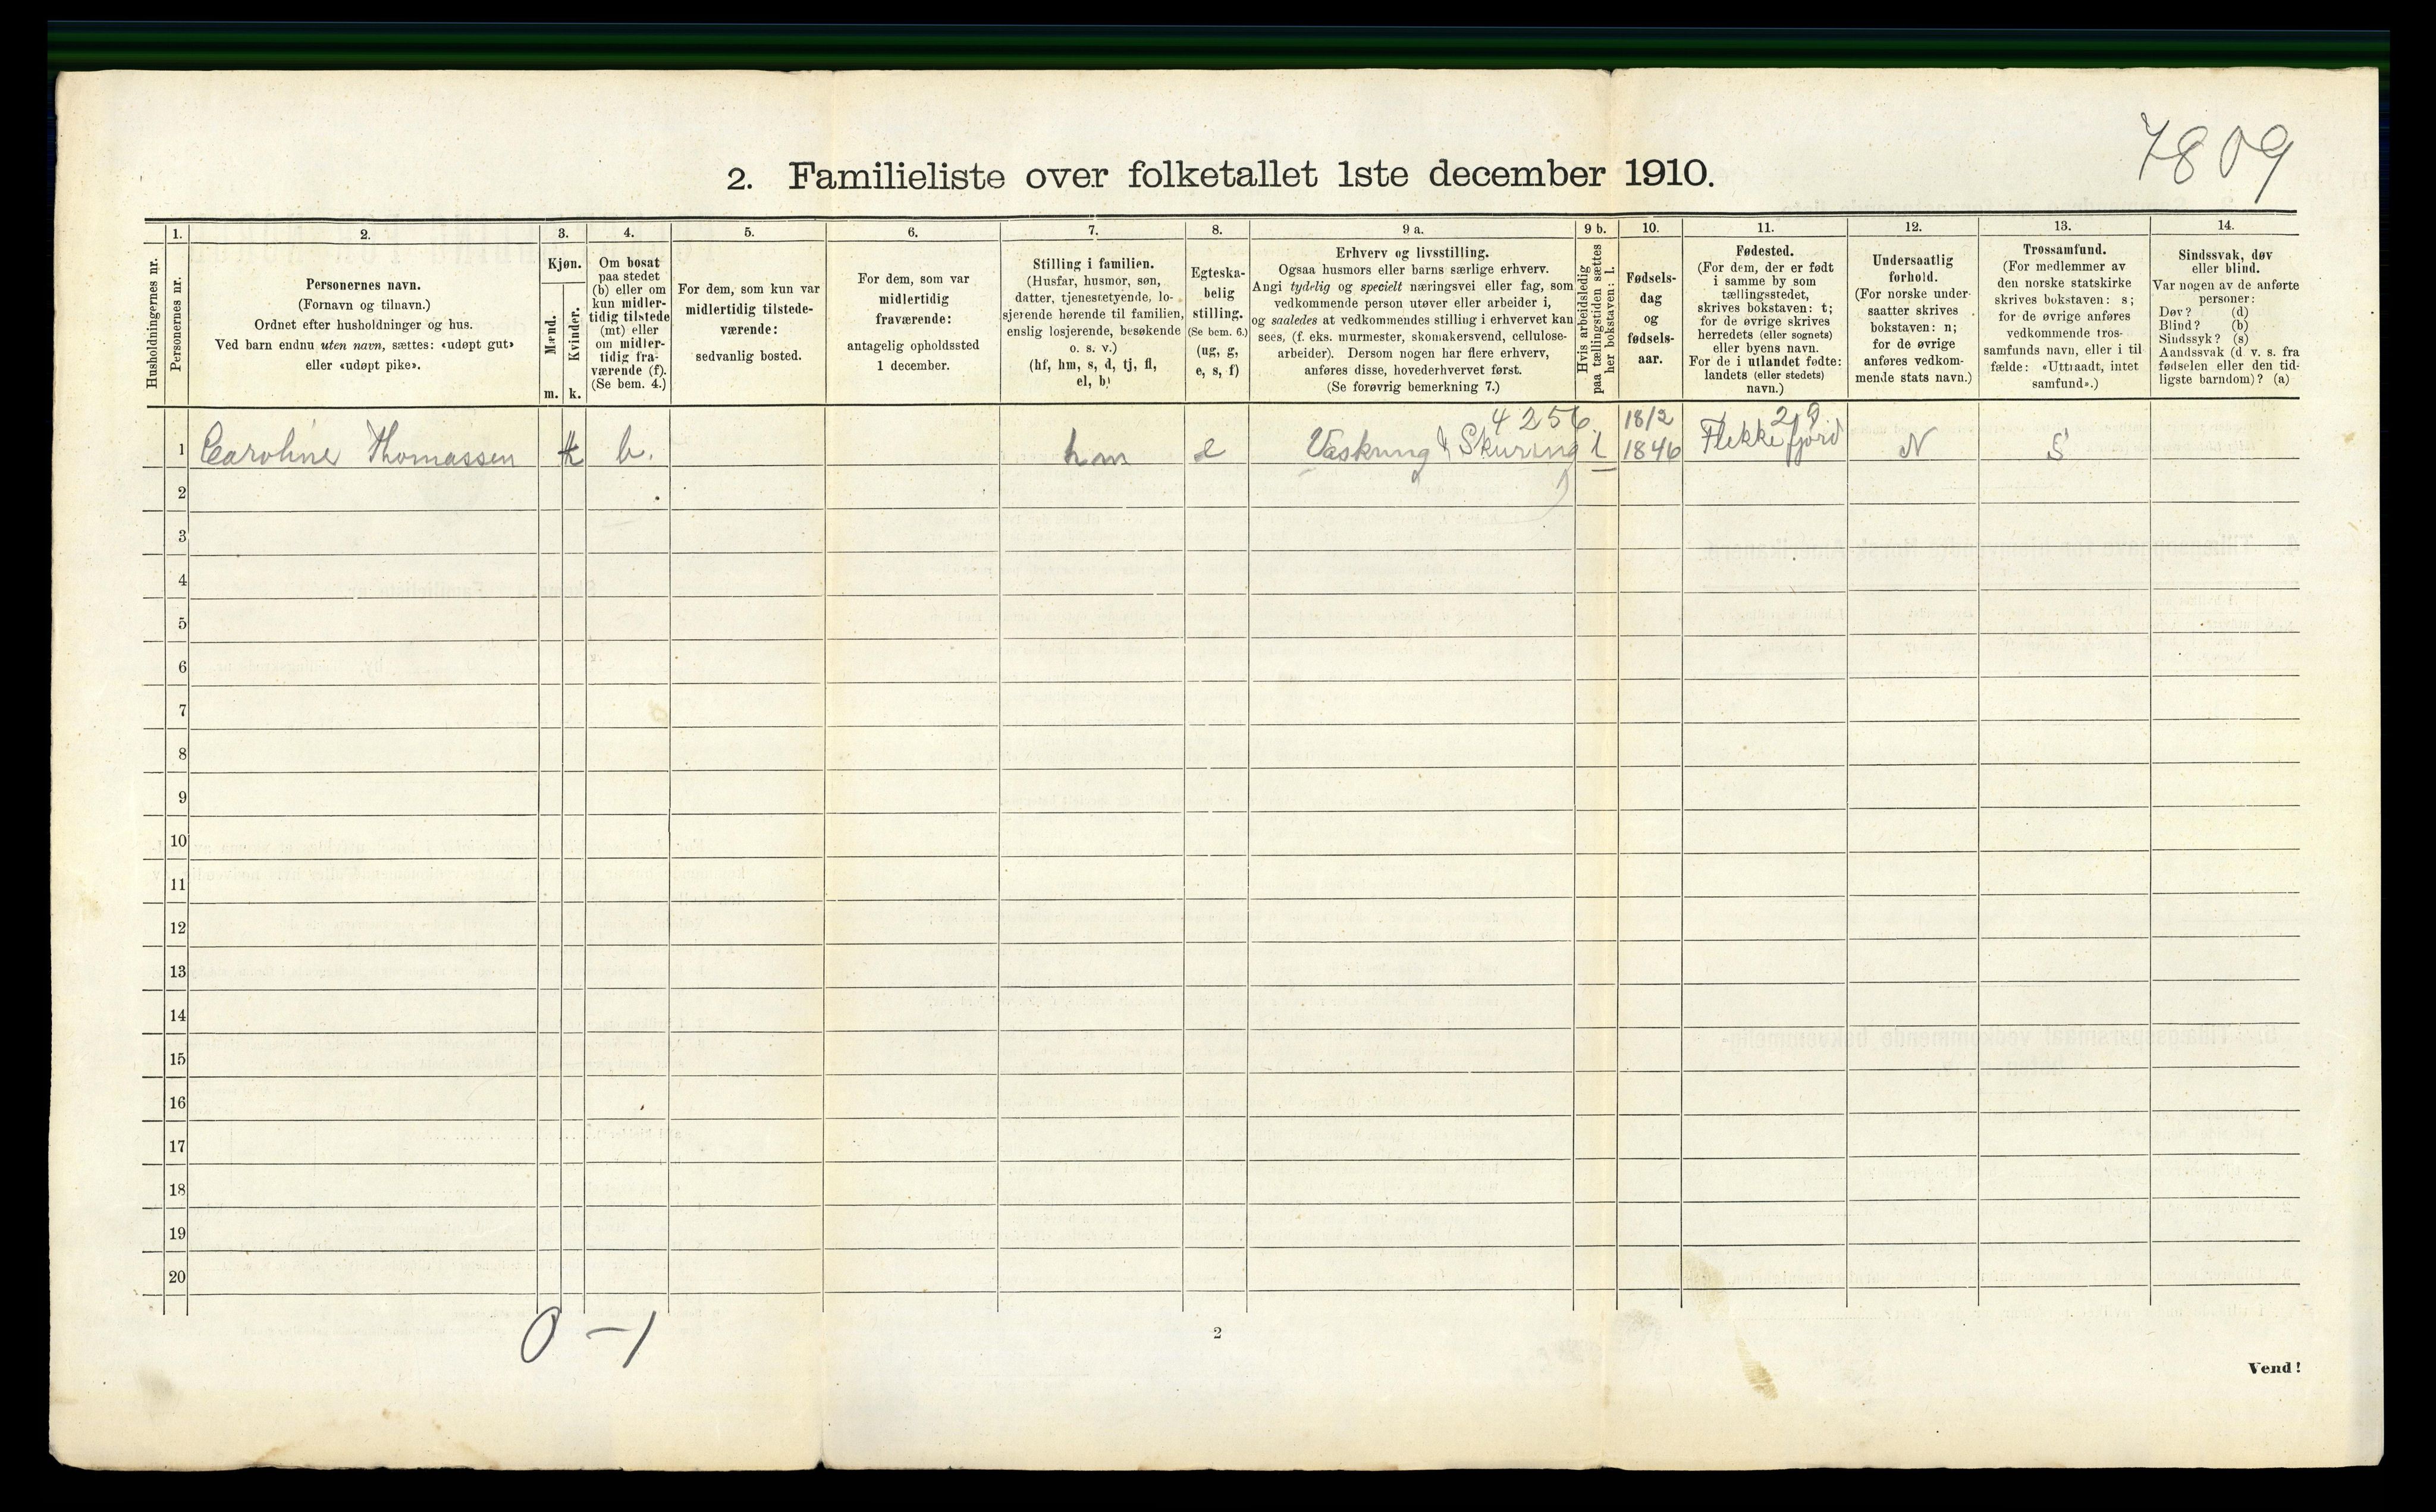 7809
2. Familieliste over folketallet 1ste december 1910.
Husholdningernes nr.
1.
Personernes nr.
2.
Personernes navn.
(Fornavn og tilnavn.)
Ordnet efter husholdninger og hus.
Ved barn endnu uten navn, sættes: «udøpt gut»
eller «udøpt pike».
3.
Kjøn.
Mænd.
Kvinder.
m. k.
4.
Om bosat
paa stedet
(b) eller om
kun midler-
tidig tilstede
(mt) eller
om midler-
tidig fra-
værende (f).
(Se bem. 4.)
5.
For dem, som kun var
midlertidig tilstede-
værende:
sedvanlig bosted.
6.
For dem, som var
midlertidig
fraværende:
antagelig opholdssted
1 december.
7.
Stilling i familien.
(Husfar, husmor, søn,
datter, tjenestetyende, lo-
sjerende hørende til familien,
enslig losjerende, besøkende
o. s. v.)
(hf, hm, s, d, tj, fl,
el, b)
8.
Egteska-
belig
stilling.
(Se bem. 6.)
(ug, g,
e, s, f)
9 a.
Erhverv og livsstilling.
Ogsaa husmors eller barns særlige erhverv.
Angi tydelig og specielt næringsvei eller fag, som
vedkommende person utøver eller arbeider i,
og saaledes at vedkommendes stilling i erhvervet kan
sees, (f. eks. murmester, skomakersvend, cellulose-
arbeider). Dersom nogen har flere erhverv,
anføres disse, hovederhvervet først.
(Se forøvrig bemerkning 7.)
9 b.
Hvis arbeidsledig
paa tællingstiden sættes
her bokstaven: l.
10.
Fødsels-
dag
og
fødsels-
aar.
11.
Fødested.
(For dem, der er født
i samme by som
tællingsstedet,
skrives bokstaven: t;
for de øvrige skrives
herredets (eller sognets)
eller byens navn.
For de i utlandet fødte:
landets (eller stedets)
navn.)
12.
Undersaatlig
forhold.
(For norske under-
saatter skrives
bokstaven: n;
for de øvrige
anføres vedkom-
mende stats navn.)
13.
Trossamfund.
(For medlemmer av
den norske statskirke
skrives bokstaven: s;
for de øvrige anføres
vedkommende tros-
samfunds navn, eller i til-
fælde: «Uttraadt, intet
samfund».)
14.
Sindssvak, døv
eller blind.
Var nogen av de anførte
personer:
Døv? (d)
Blind? (b)
Sindssyk? (s)
Aandssvak (d. v. s. fra
fødselen eller den tid-
ligste barndom)? (a)
4256 18/2 29
1 Caroline Thomassen k b. hm e Vaskning & Skuring l 1846 Flekkefjord N S
2
3
4
5
6
7
8
9
10
11
12
13
14
15
16
17
18
19
20
0 – 1
2
Vend!